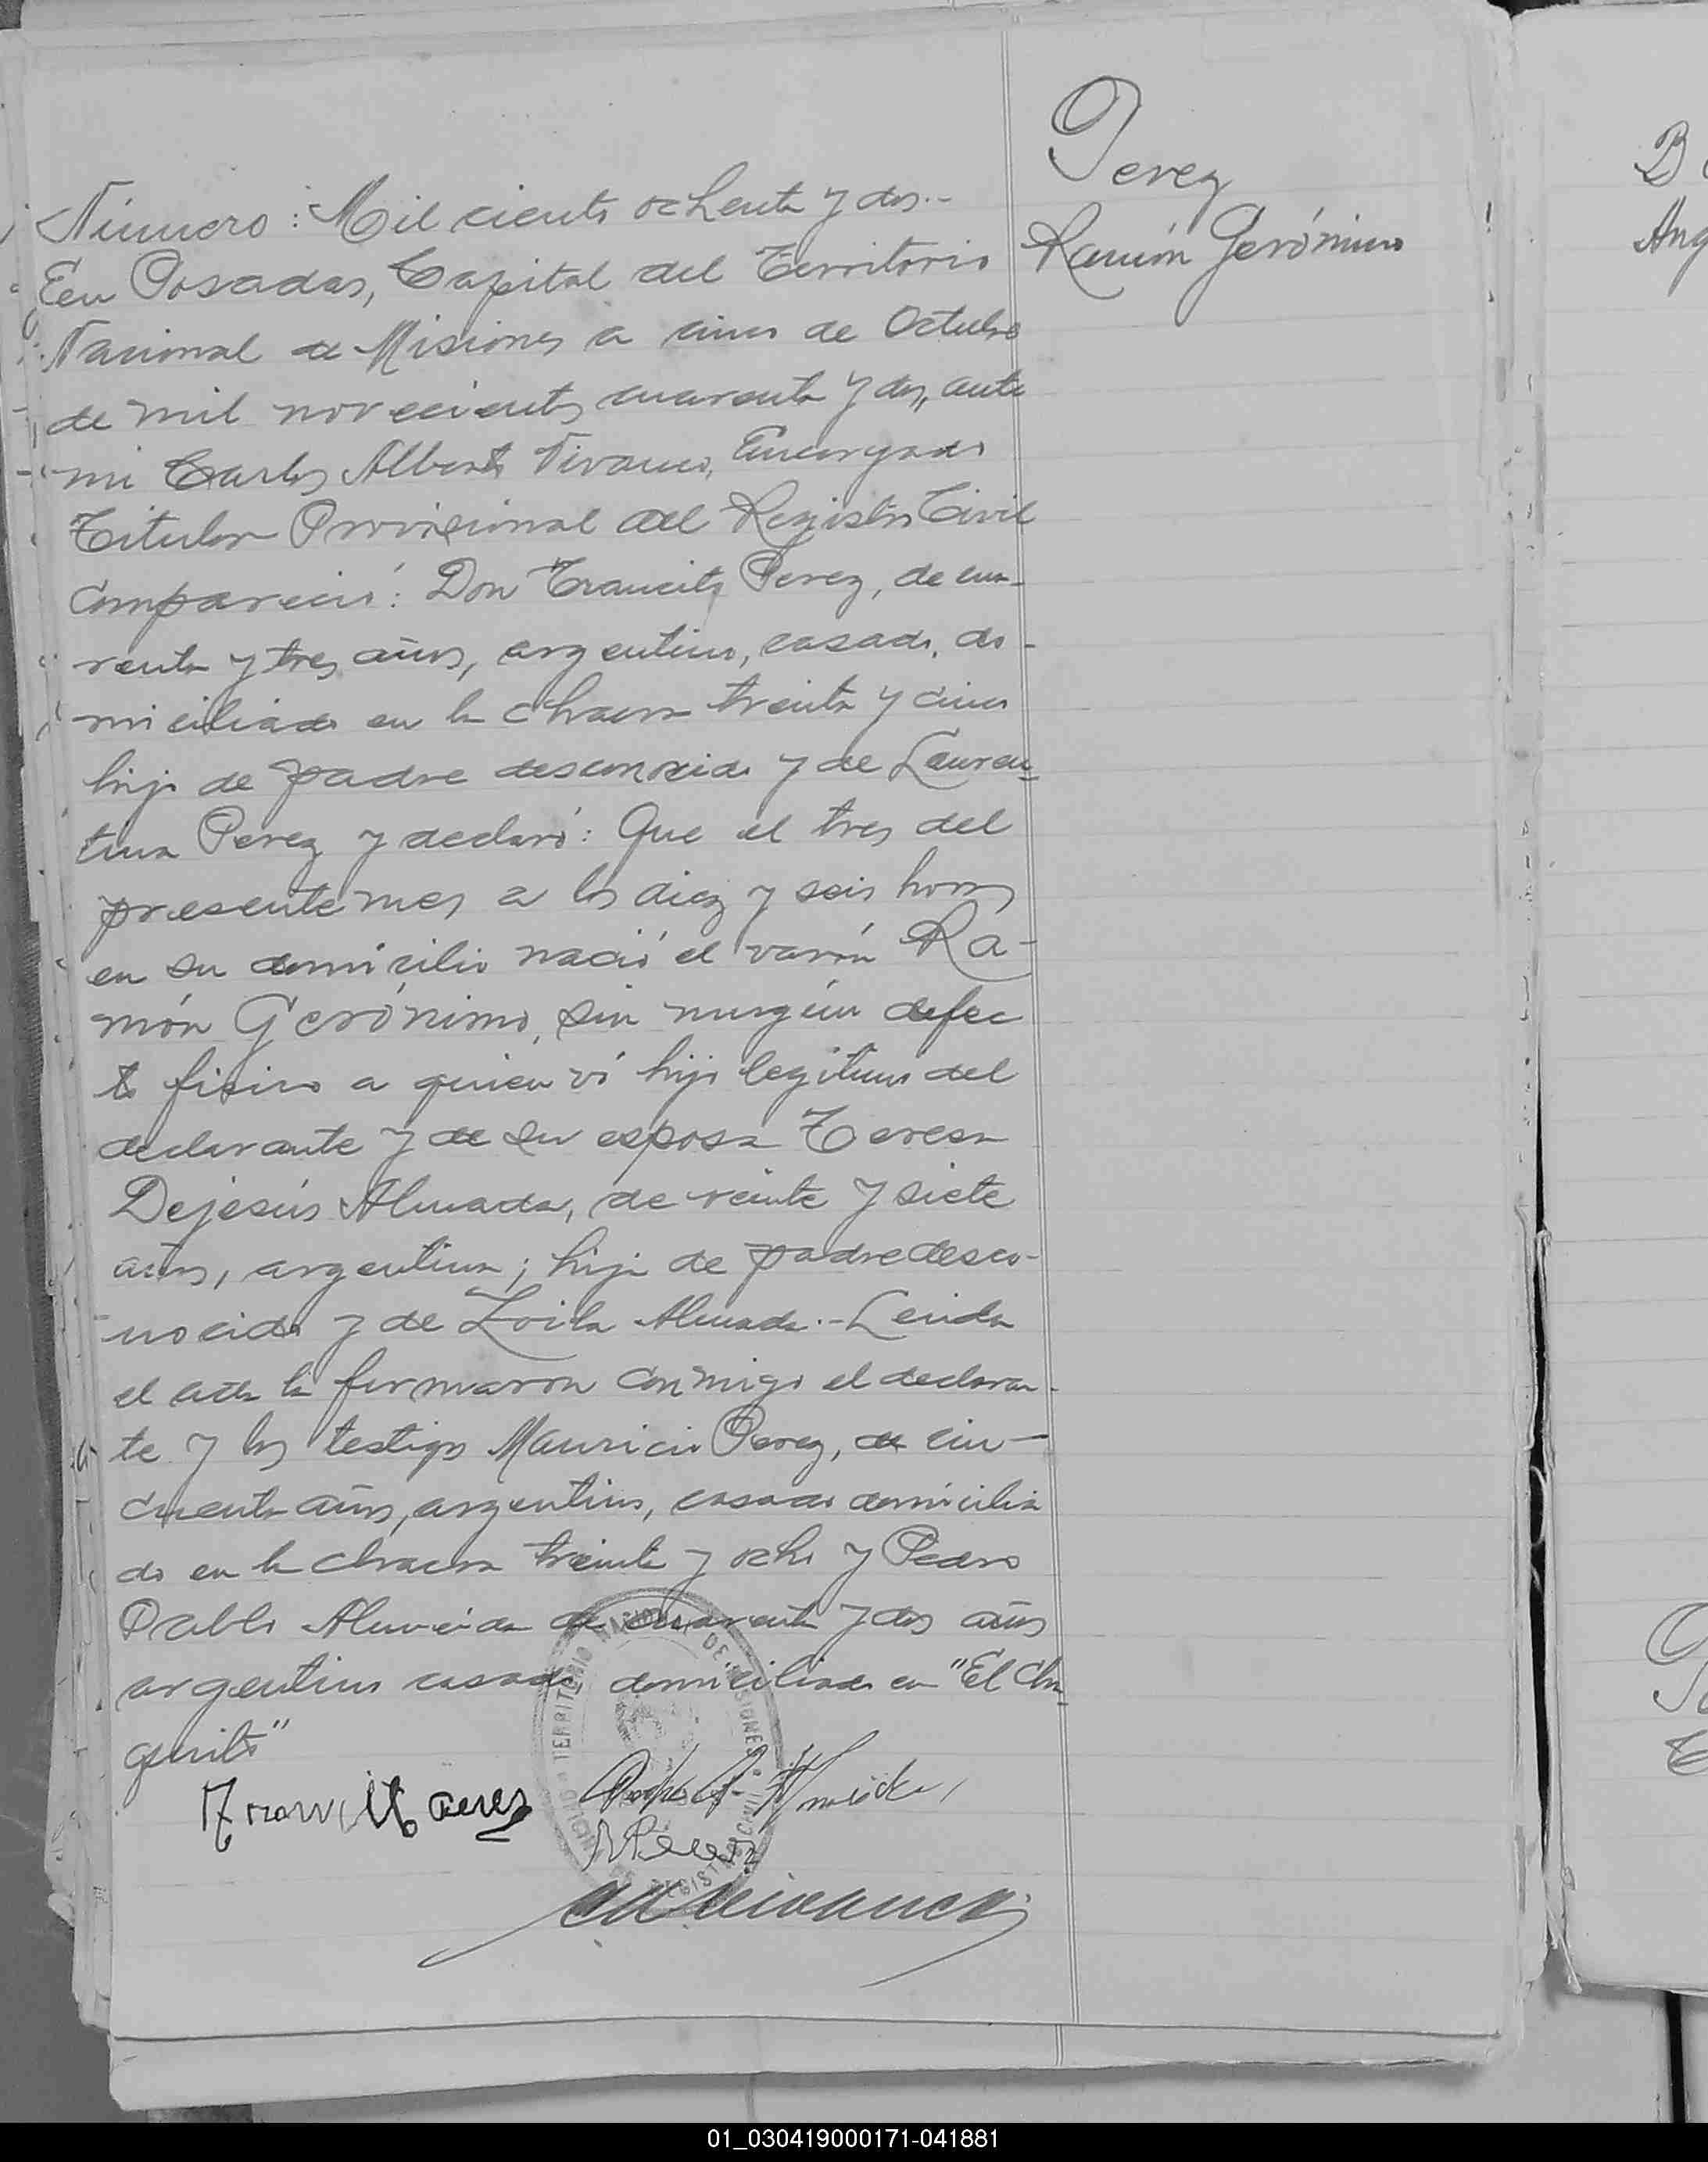 Perez
Ramón Gerónimo
Número: Mil ciento ochenta y dos.-
En Posadas, Capital del Territorio
Nacional de Misiones a cinco de Octubre
de mil novecientos cuarenta y dos, ante
mi Carlos Alberto Vivanco, Encargado
Titular Provisional del Registro Civil
compareció: Don Trancito Perez, de cua-
renta y tres años, argentino, casado, do-
miciliado en la chacra treinta y cinco
hijo de padre desconocido y de Lauren-
tina Perez y declaró: Que el tres del
presente mes a las diez y seis horas
en su domicilio nació el varón Ra-
món Gerónimo, sin ningún defec
to fisico a quien ví hijo legitimo del
declarante y de su esposa Teresa
Dejesús Almada, de veinte y siete
años, argentina; hija de padre desco-
nocido y de Zoila Almada.- Leida
el acta la firmaron conmigo el declaran-
te y los testigos Mauricio Perez, de cin-
cuenta años, argentino, casado domicilia
do en la chacra treinta y ocho y Pedro
Pablo Almeida de cuarenta y dos años
argentino casado domiciliado en "El Cha-
guito"
TERRITORIO NACIONAL DE MISIONES
REGISTRO CIVIL
Perez
Almeida
MPerez
CAVivanco
B
Ang
01_030419000171-041881